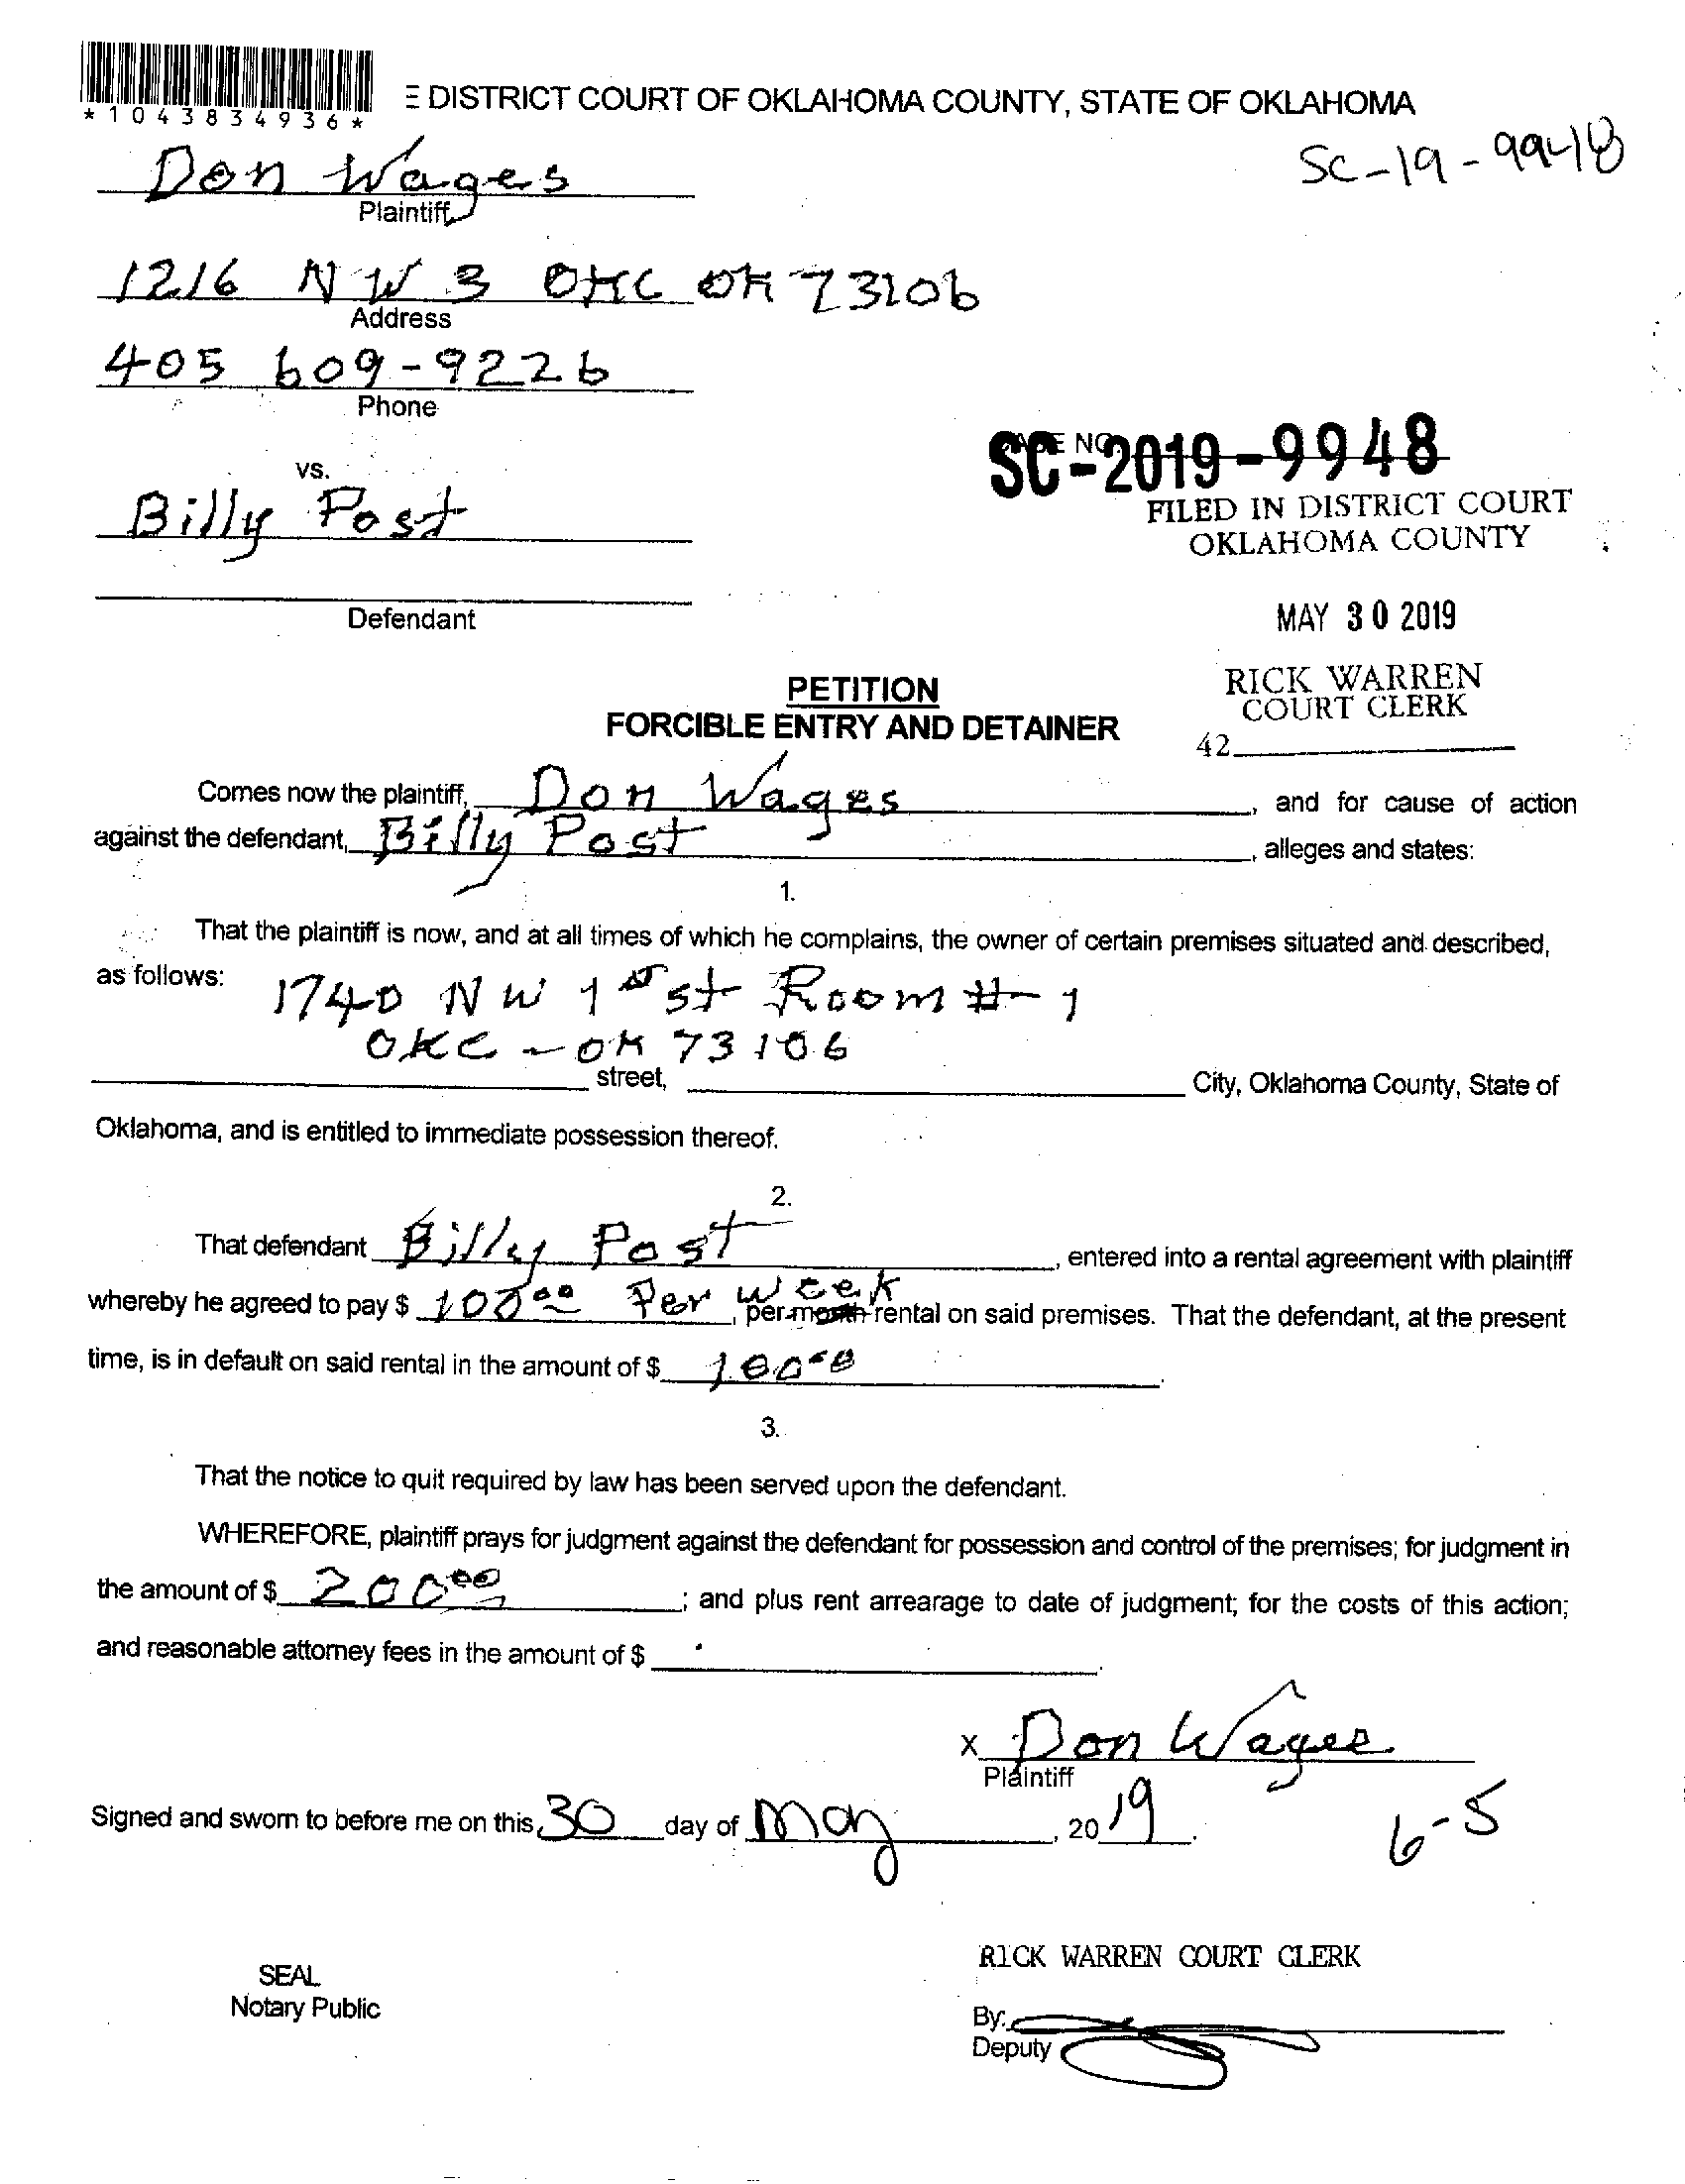 *1043834936*
E DISTRICT COURT OF OKLAHOMA COUNTY, STATE OF OKLAHOMA
SC-19-9948
Don Wages
Plaintiff
1216 NW 3 OKC OK 73106
Address
405 609-9226
Phone
vs.
SC-2019-9948
Billy Post
FILED IN DISTRICT COURT
OKLAHOMA COUNTY
Defendant
MAY 30 2019
PETITION
FORCIBLE ENTRY AND DETAINER
RICK WARREN
COURT CLERK
42
Comes now the plaintiff, Don Wages, and for cause of action
against the defendant, Billy Post, alleges and states:
1.
That the plaintiff is now, and at all times of which he complains, the owner of certain premises situated and described,
as follows: 1740 NW 1st st Room # 1
OKC - OK 73106
street, City, Oklahoma County, State of
Oklahoma, and is entitled to immediate possession thereof.
2.
That defendant Billy Post, entered into a rental agreement with plaintiff
whereby he agreed to pay $ 100 00 Per week, per month rental on said premises. That the defendant, at the present
time, is in default on said rental in the amount of $ 100 00.
3.
That the notice to quit required by law has been served upon the defendant.
WHEREFORE, plaintiff prays for judgment against the defendant for possession and control of the premises; for judgment in
the amount of $ 200 00; and plus rent arrearage to date of judgment; for the costs of this action;
and reasonable attorney fees in the amount of $
x Don Wages
Plaintiff
Signed and sworn to before me on this 30 day of May, 2019.
6-5
RICK WARREN COURT CLERK
SEAL
Notary Public
By:
Deputy